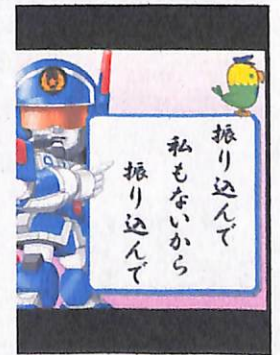 振り込んで
私もないから
振り込んで